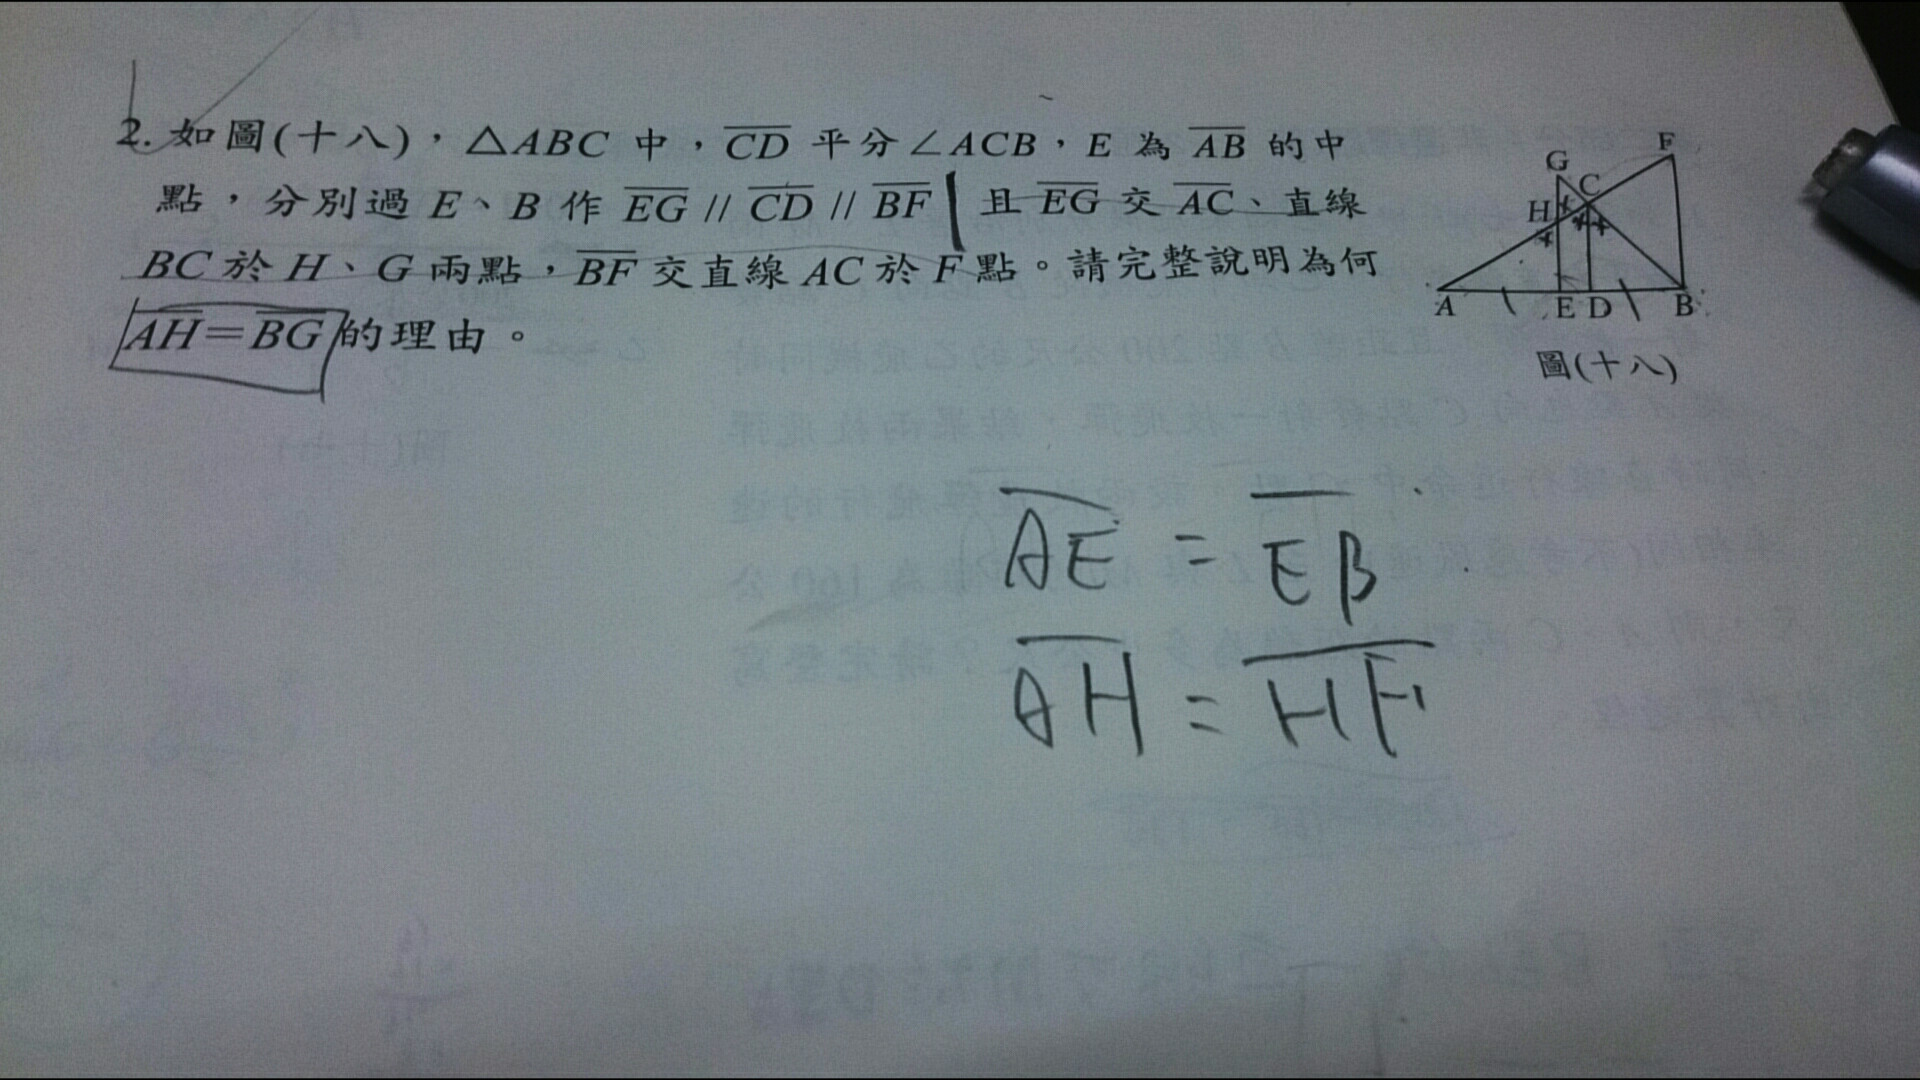 2. 如圖(十八)，△ABC 中，CD 平分∠ACB，E 為 AB 的中
點，分別過 E、B 作 EG // CD // BF 且 EG 交 AC、直線
BC 於 H、G 兩點，BF 交直線 AC 於 F 點。請完整說明為何
AH=BG 的理由。
F
G
C
H
A E D B
圖(十八)
AE = EB
AH = HF